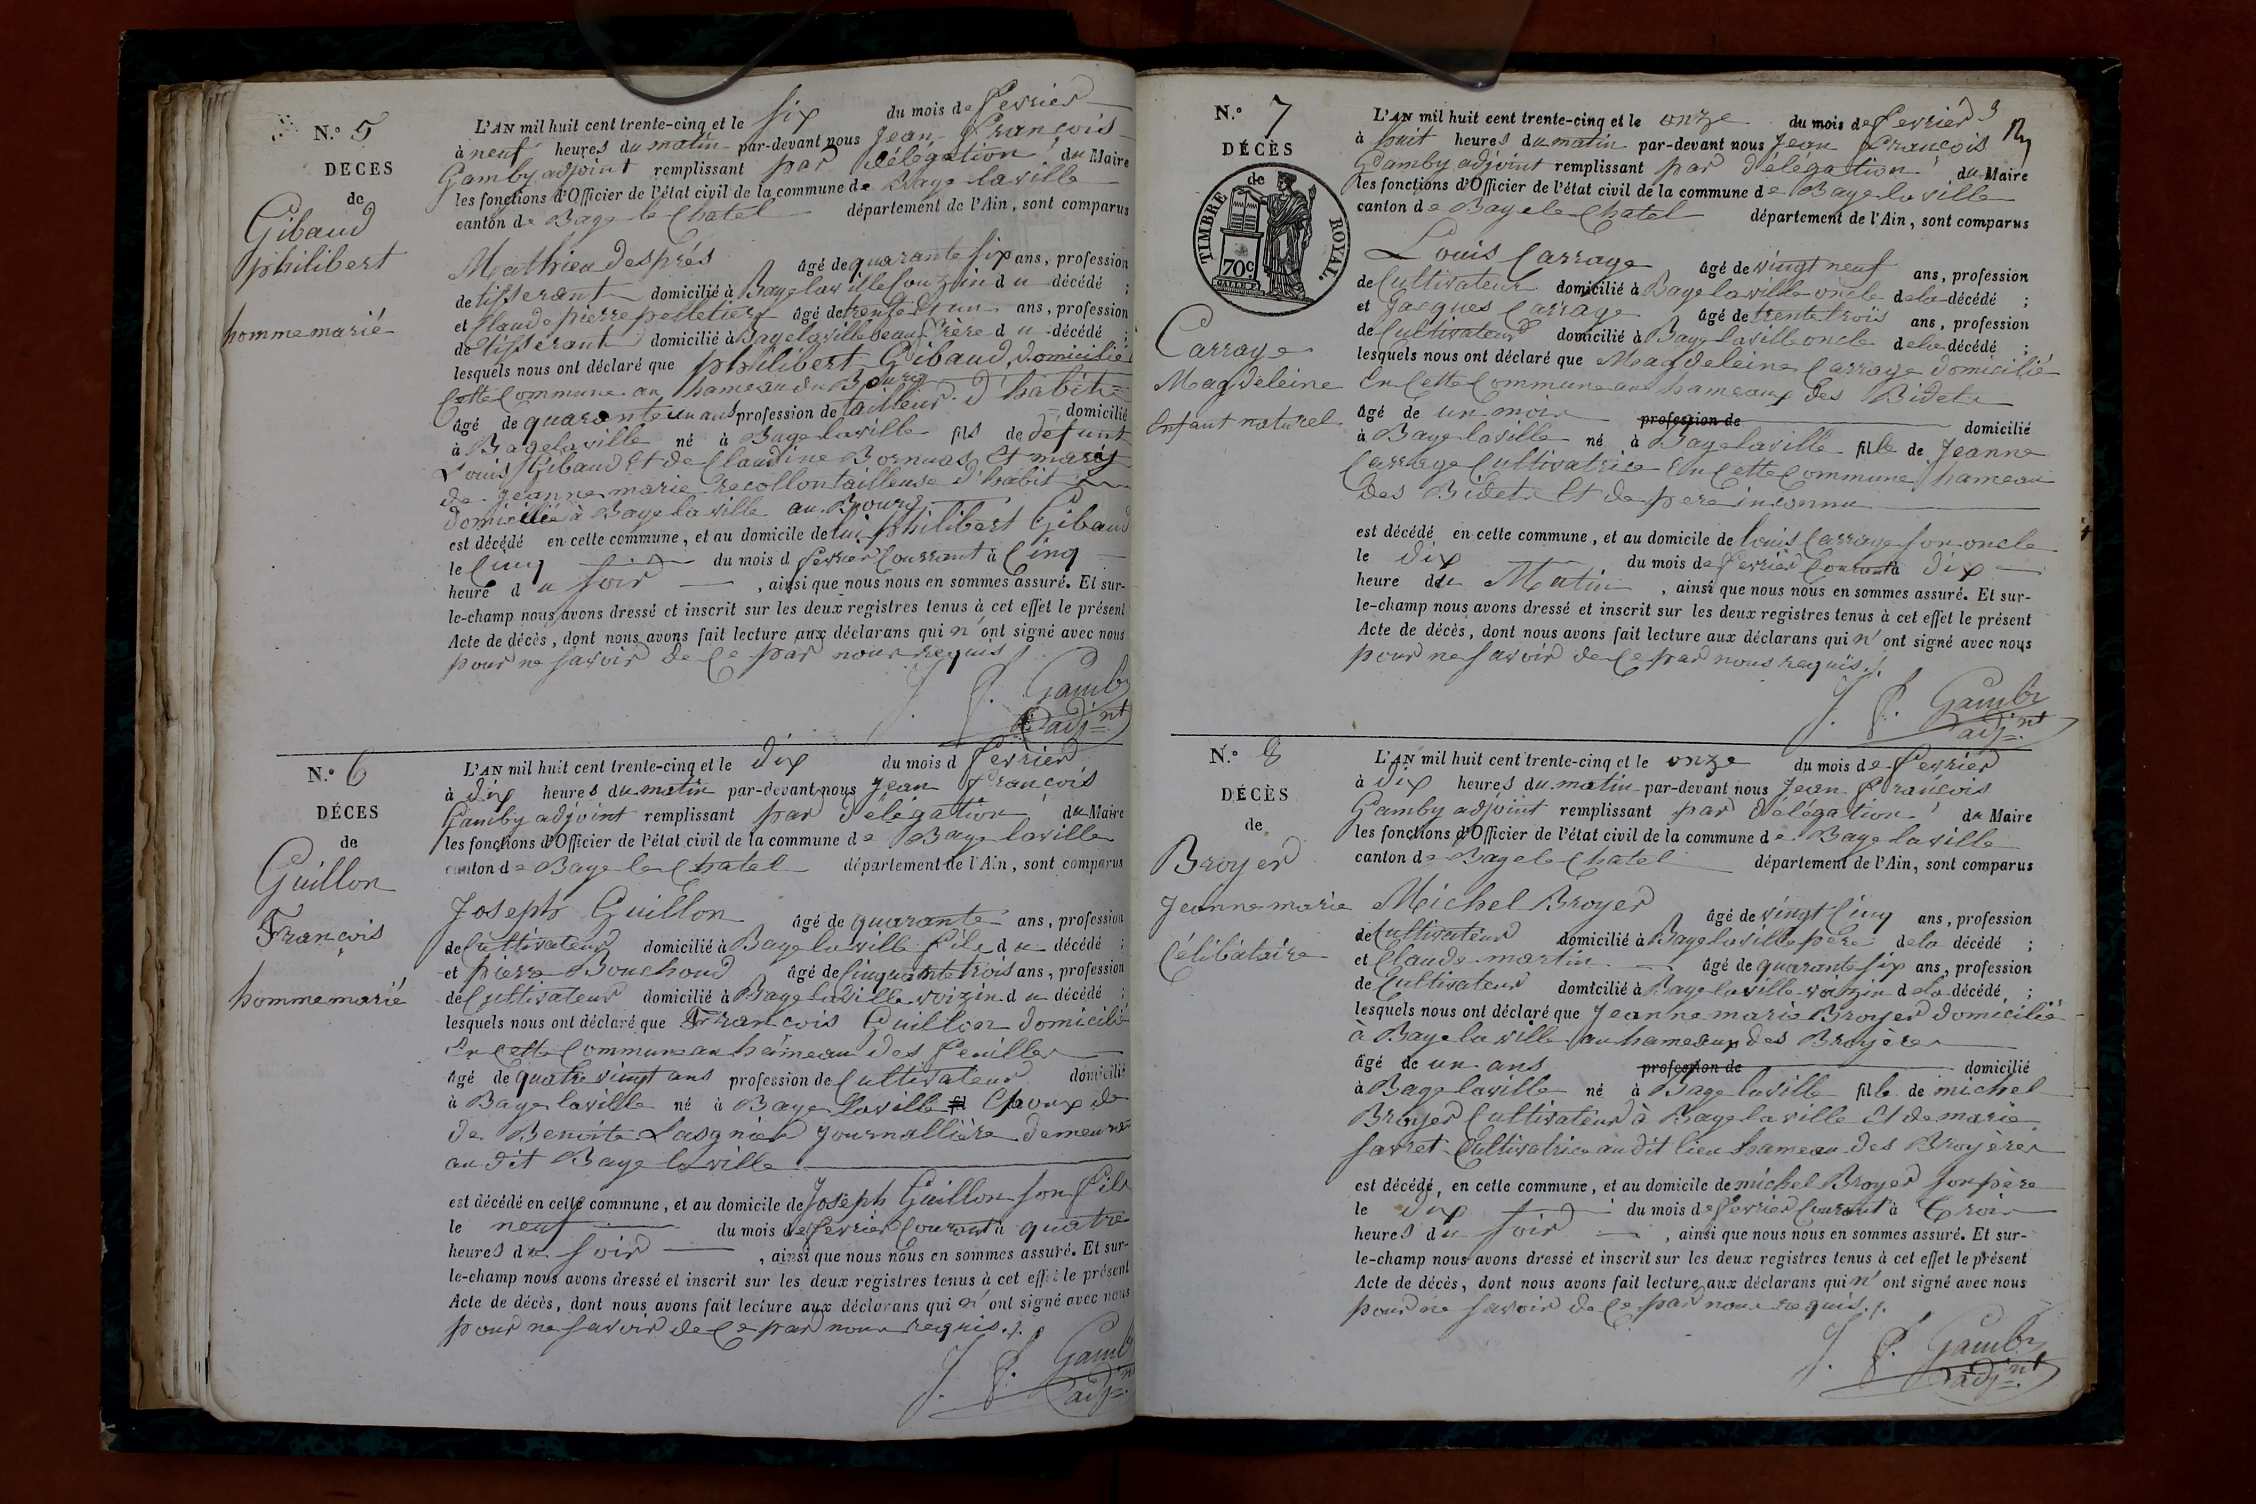 N.º 5
DECES
de
Gibaud
philibert
homme marié
L'AN mil huit cent trente-cinq et le six du mois de fevrier
à neuf heures du matin par-devant nous Jean François
Gamby adjoint remplissant par délégation du Maire
les fonctions d'Officier de l'état civil de la commune de Bage la ville
canton de Bage le Chatel département de l'Ain, sont comparus
Mathieu després âgé de quarante six ans, profession
de tisserant domicilié à Bage la ville Couzin du décédé ;
et Claude pierre pelletier âgé de trente et un ans, profession
de tisserant domicilié à Bage la ville beau frère du décédé ;
lesquels nous ont déclaré que philibert Gibaud domicilié
Cette Commune au hameau du Bourg
âgé de quarante un ans profession de tailleur d'habit domicilié
à Bage la ville né à Bage la ville fils de défunt
Louis Gibaud Et de Claudine Et marié
de Jeanne marie tailleuse d'habit
domiciliée à Bage la ville au Bourg
est décédé en cette commune, et au domicile de lui philibert Gibaud
le Cinq du mois d fevrier Courrant à Cinq
heure du soir , ainsi que nous nous en sommes assuré. Et sur-
le-champ nous avons dressé et inscrit sur les deux registres tenus à cet effet le présent
Acte de décès, dont nous avons fait lecture aux déclarans qui n'ont signé avec nous
pour ne savoir de Ce par nous requis
J. f. Gamby
adjnt
N.º 6
DÉCES
de
Guillon
François
homme marié
L'AN mil huit cent trente-cinq et le dix du mois d fevrier
à dix heures du matin par-devant nous Jean François
Gamby adjoint remplissant par délégation du Maire
les fonctions d'Officier de l'état civil de la commune de Bage la ville
canton de Bage le Chatel département de l'Ain, sont comparus
Joseph Guillon âgé de quarante ans, profession
de Cultivateur domicilié à Bage la ville fils du décédé ;
et pierre Bouchoud âgé de Cinquante trois ans, profession
de Cultivateur domicilié à Bage la ville voizin du décédé ;
lesquels nous ont déclaré que François Guillon domicilié
En Cette Commune au hameau des feuilles
âgé de quatre vingt ans profession de Cultivateur domicilié
à Bage la ville né à Bage la ville Epoux de
de Benoite Lasgnier Journallière demeurant
au dit Bage la ville
est décédé en cette commune, et au domicile de Joseph Guillon son fils
le neuf du mois de fevrier Courant à quatre
heures du soir , ainsi que nous nous en sommes assuré. Et sur-
le-champ nous avons dressé et inscrit sur les deux registres tenus à cet effet le présent
Acte de décès, dont nous avons fait lecture aux déclarans qui n'ont signé avec nous
pour ne savoir de Ce par nous requis ./.
J. f. Gamby
adjnt
3
N.º 7
DÉCÈS
de
TIMBRE ROYAL.
70c
Carrage
Magdeleine
Enfant naturel
L'AN mil huit cent trente-cinq et le onze du mois de fevrier
à huit heures du matin par-devant nous Jean François
Gamby adjoint remplissant par délégation du Maire
les fonctions d'Officier de l'état civil de la commune de Bage la ville
canton de Bage le Chatel département de l'Ain, sont comparus
Louis Carrage âgé de vingt neuf ans, profession
de Cultivateur domicilié à Bage la ville oncle de la décédé ;
et Jacques Carrage âgé de trente trois ans, profession
de Cultivateur domicilié à Bage la ville oncle de la décédé ;
lesquels nous ont déclaré que Magdeleine Carrage domicilié
En Cette Commune au hameaux des Bidets
âgé de un mois profession de domicilié
à Bage la ville né à Bage la ville fille de Jeanne
Carrage Cultivatrice En Cette Commune hameau
des Bidets Et de pere inconnu
est décédé en cette commune, et au domicile de louis Carrage son oncle
le dix du mois de fevrier Courant à dix
heure du Matin , ainsi que nous nous en sommes assuré. Et sur-
le-champ nous avons dressé et inscrit sur les deux registres tenus à cet effet le présent
Acte de décès, dont nous avons fait lecture aux déclarans qui n'ont signé avec nous
pour ne savoir de Ce par nous requis ./.
J. f. Gamby
adjnt
N.º 8
DÉCÈS
de
Broyer
Jeanne marie
Célibataire
L'AN mil huit cent trente-cinq et le onze du mois de fevrier
à dix heures du matin par-devant nous Jean François
Gamby adjoint remplissant par délégation du Maire
les fonctions d'Officier de l'état civil de la commune de Bage la ville
canton de Bage le Chatel département de l'Ain, sont comparus
Michel Broyer âgé de vingt Cinq ans, profession
de Cultivateur domicilié à Bage la ville père de la décédé ;
et Claude martin âgé de quarante six ans, profession
de Cultivateur domicilié à Bage la ville voizin de la décédé ;
lesquels nous ont déclaré que Jeanne marie Broyer domicilié
à Bage la ville au hameaux des Broyères
âgé de un ans profession de domicilié
à Bage la ville né à Bage la ville fille de michel
Broyer Cultivateur à Bage la ville Et de marie
favret Cultivatrice au dit lieu hameau des Broyères
est décédé, en cette commune, et au domicile de michel Broyer son père
le dix du mois de fevrier Courant à trois
heures du soir , ainsi que nous nous en sommes assuré. Et sur-
le-champ nous avons dressé et inscrit sur les deux registres tenus à cet effet le présent
Acte de décès, dont nous avons fait lecture aux déclarans qui n'ont signé avec nous
pour ne savoir de Ce par nous requis ./.
J. f. Gamby
adjnt